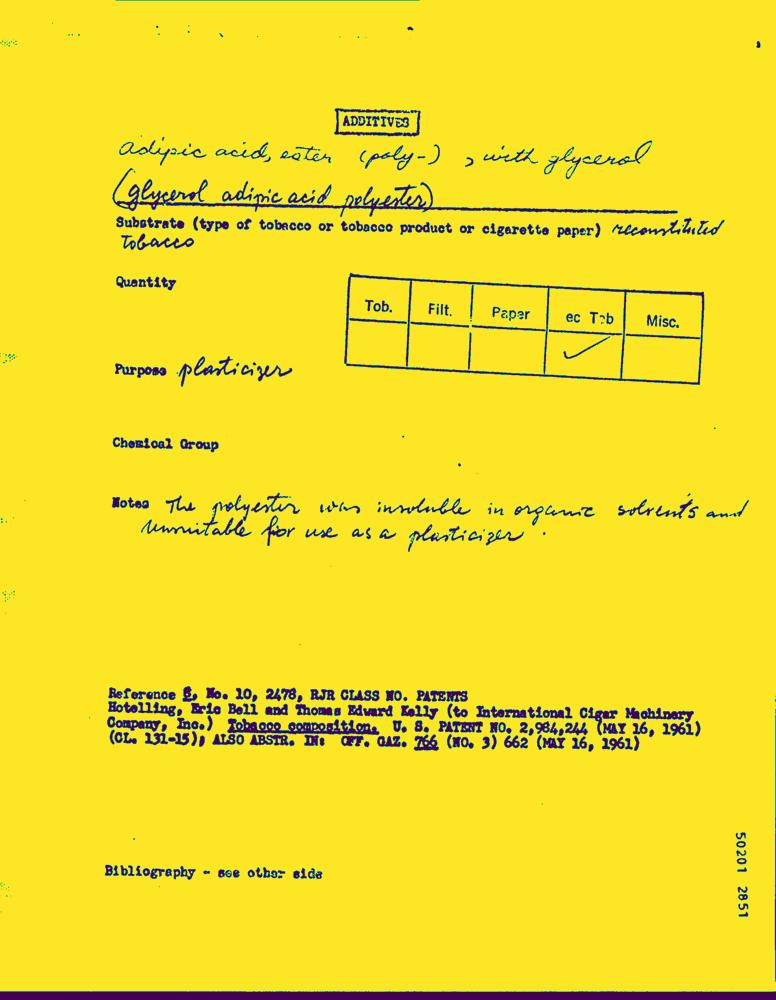 ADDITIVES
adipic acid, ester (poly-), with glycerol
(glycerol adipic acid polyester)
Substrate (type of tobacco or tobacco product or cigarette paper) reconstituted
tobacco
Quantity
Tob. Filt. Paper ec Tob Misc.
✓
Purpose plasticizer
Chemical Group
Notes The polyester was insoluble in organic solvents and
unsuitable for use as a plasticizer.
Reference 8, No. 10, 2478, RJR CLASS NO. PATENTS
Hotelling, Eric Bell and Thomas Edward Kelly (to International Cigar Machinery
Company, Inc.) Tobacco composition. U. S. PATENT NO. 2,984,244 (MAY 16, 1961)
(CL. 131-15); ALSO ABSTR. IN: OFF. GAZ. 766 (NO. 3) 662 (MAY 16, 1961)
Bibliography - see other side
50201 2851